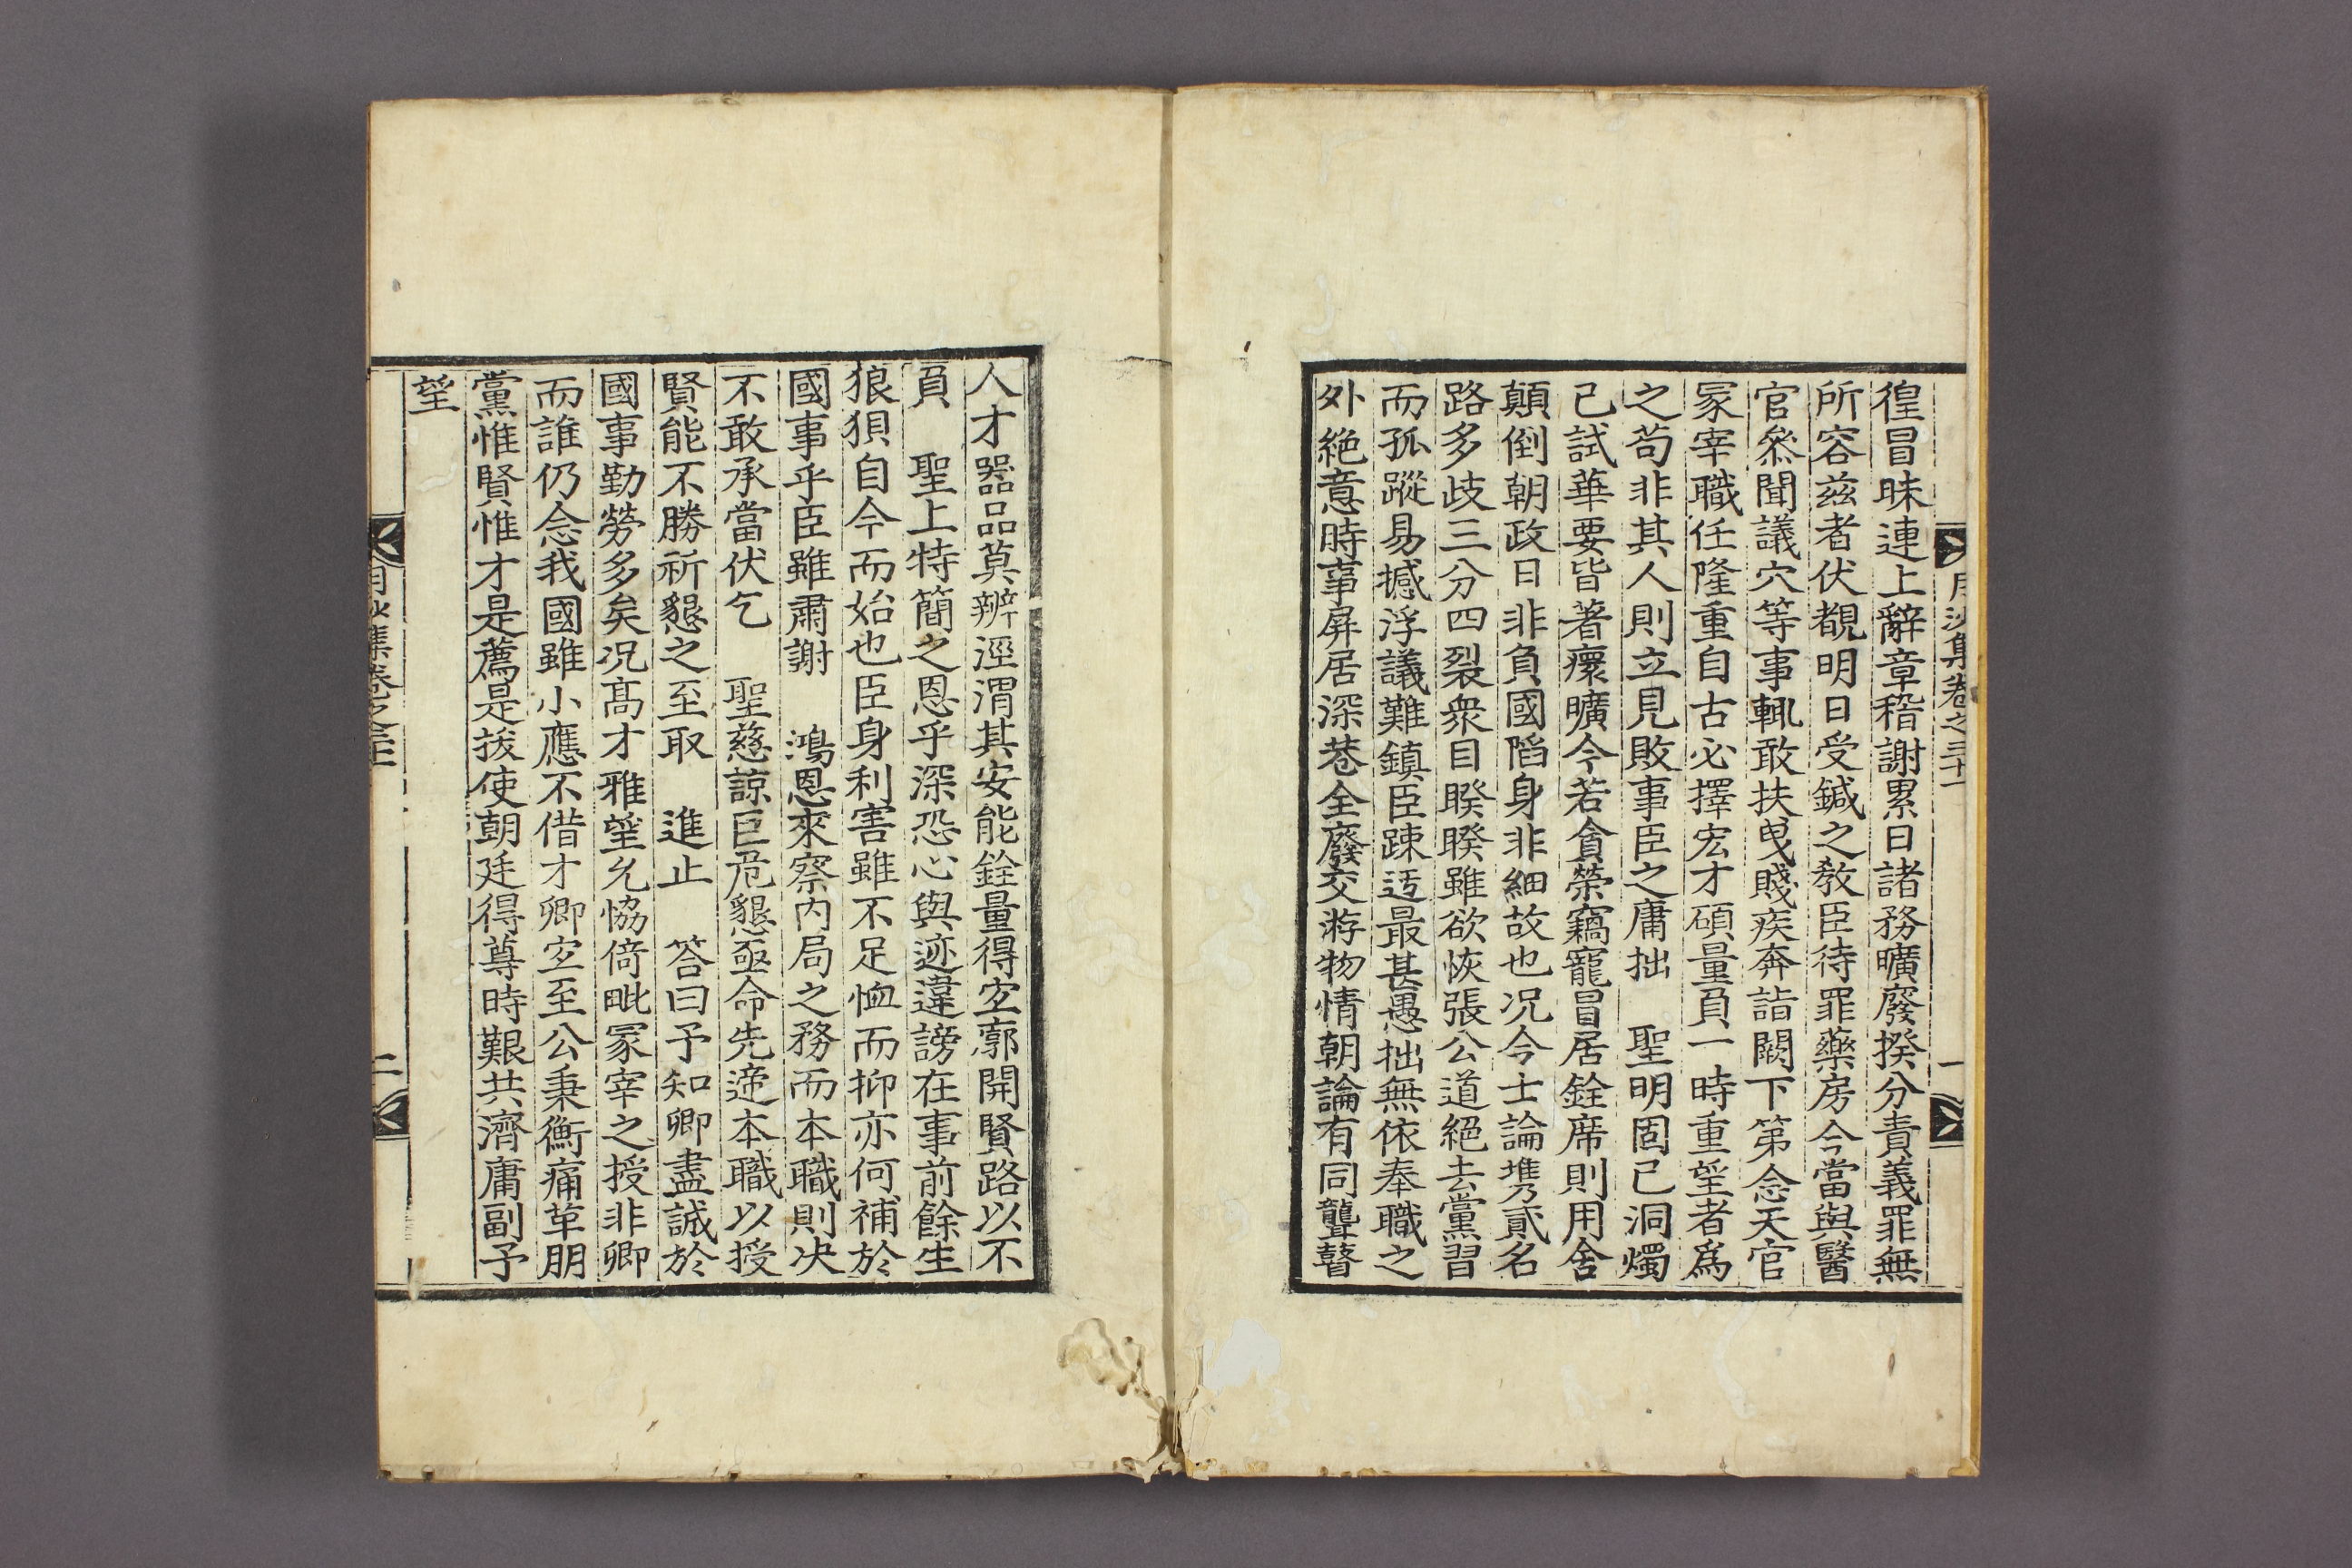 月沙集卷之三十一
一
徨冒昧連上辭章稽謝累日諸務曠廢揆分責義罪無
所容兹者伏覩明日受鍼之教臣待罪藥房今當與醫
官叅聞議穴等事輒敢扶曳賤疾奔詣闕下第念天官
冢宰職任隆重自古必擇宏才碩量負一時重望者爲
之苟非其人則立見敗事臣之庸拙　聖明固已洞燭
己試華要皆著瘝曠今若貪榮竊寵冒居銓席則用舍
顛倒朝政日非負國陷身非細故也况今士論携貳名
路多歧三分四裂衆目睽睽雖欲恢張公道絕去黨習
而孤蹤易撼浮議難鎮臣踈迃最甚愚拙無依奉職之
外絶意時事屏居深巷全廢交游物情朝論有同聾瞽
人才器品莫辨涇渭其安能銓量得宜廓開賢路以不
負　聖上特簡之恩乎深恐心與迹違謗在事前餘生
狼狽自今而始也臣身利害雖不足恤而抑亦何補於
國事乎臣雖肅謝　鴻恩來察內局之務而本職則决
不敢承當伏乞　聖慈諒臣危懇亟命先遞本職以授
賢能不勝祈懇之至取　進止　答曰予知卿盡誠於
國事勤勞多矣况高才雅望允恊倚毗冢宰之授非卿
而誰仍念我國雖小應不借才卿宜至公秉衡痛革朋
黨惟賢惟才是薦是拔使朝廷得尊時艱共濟庸副予
望
月沙集卷之三十一
二